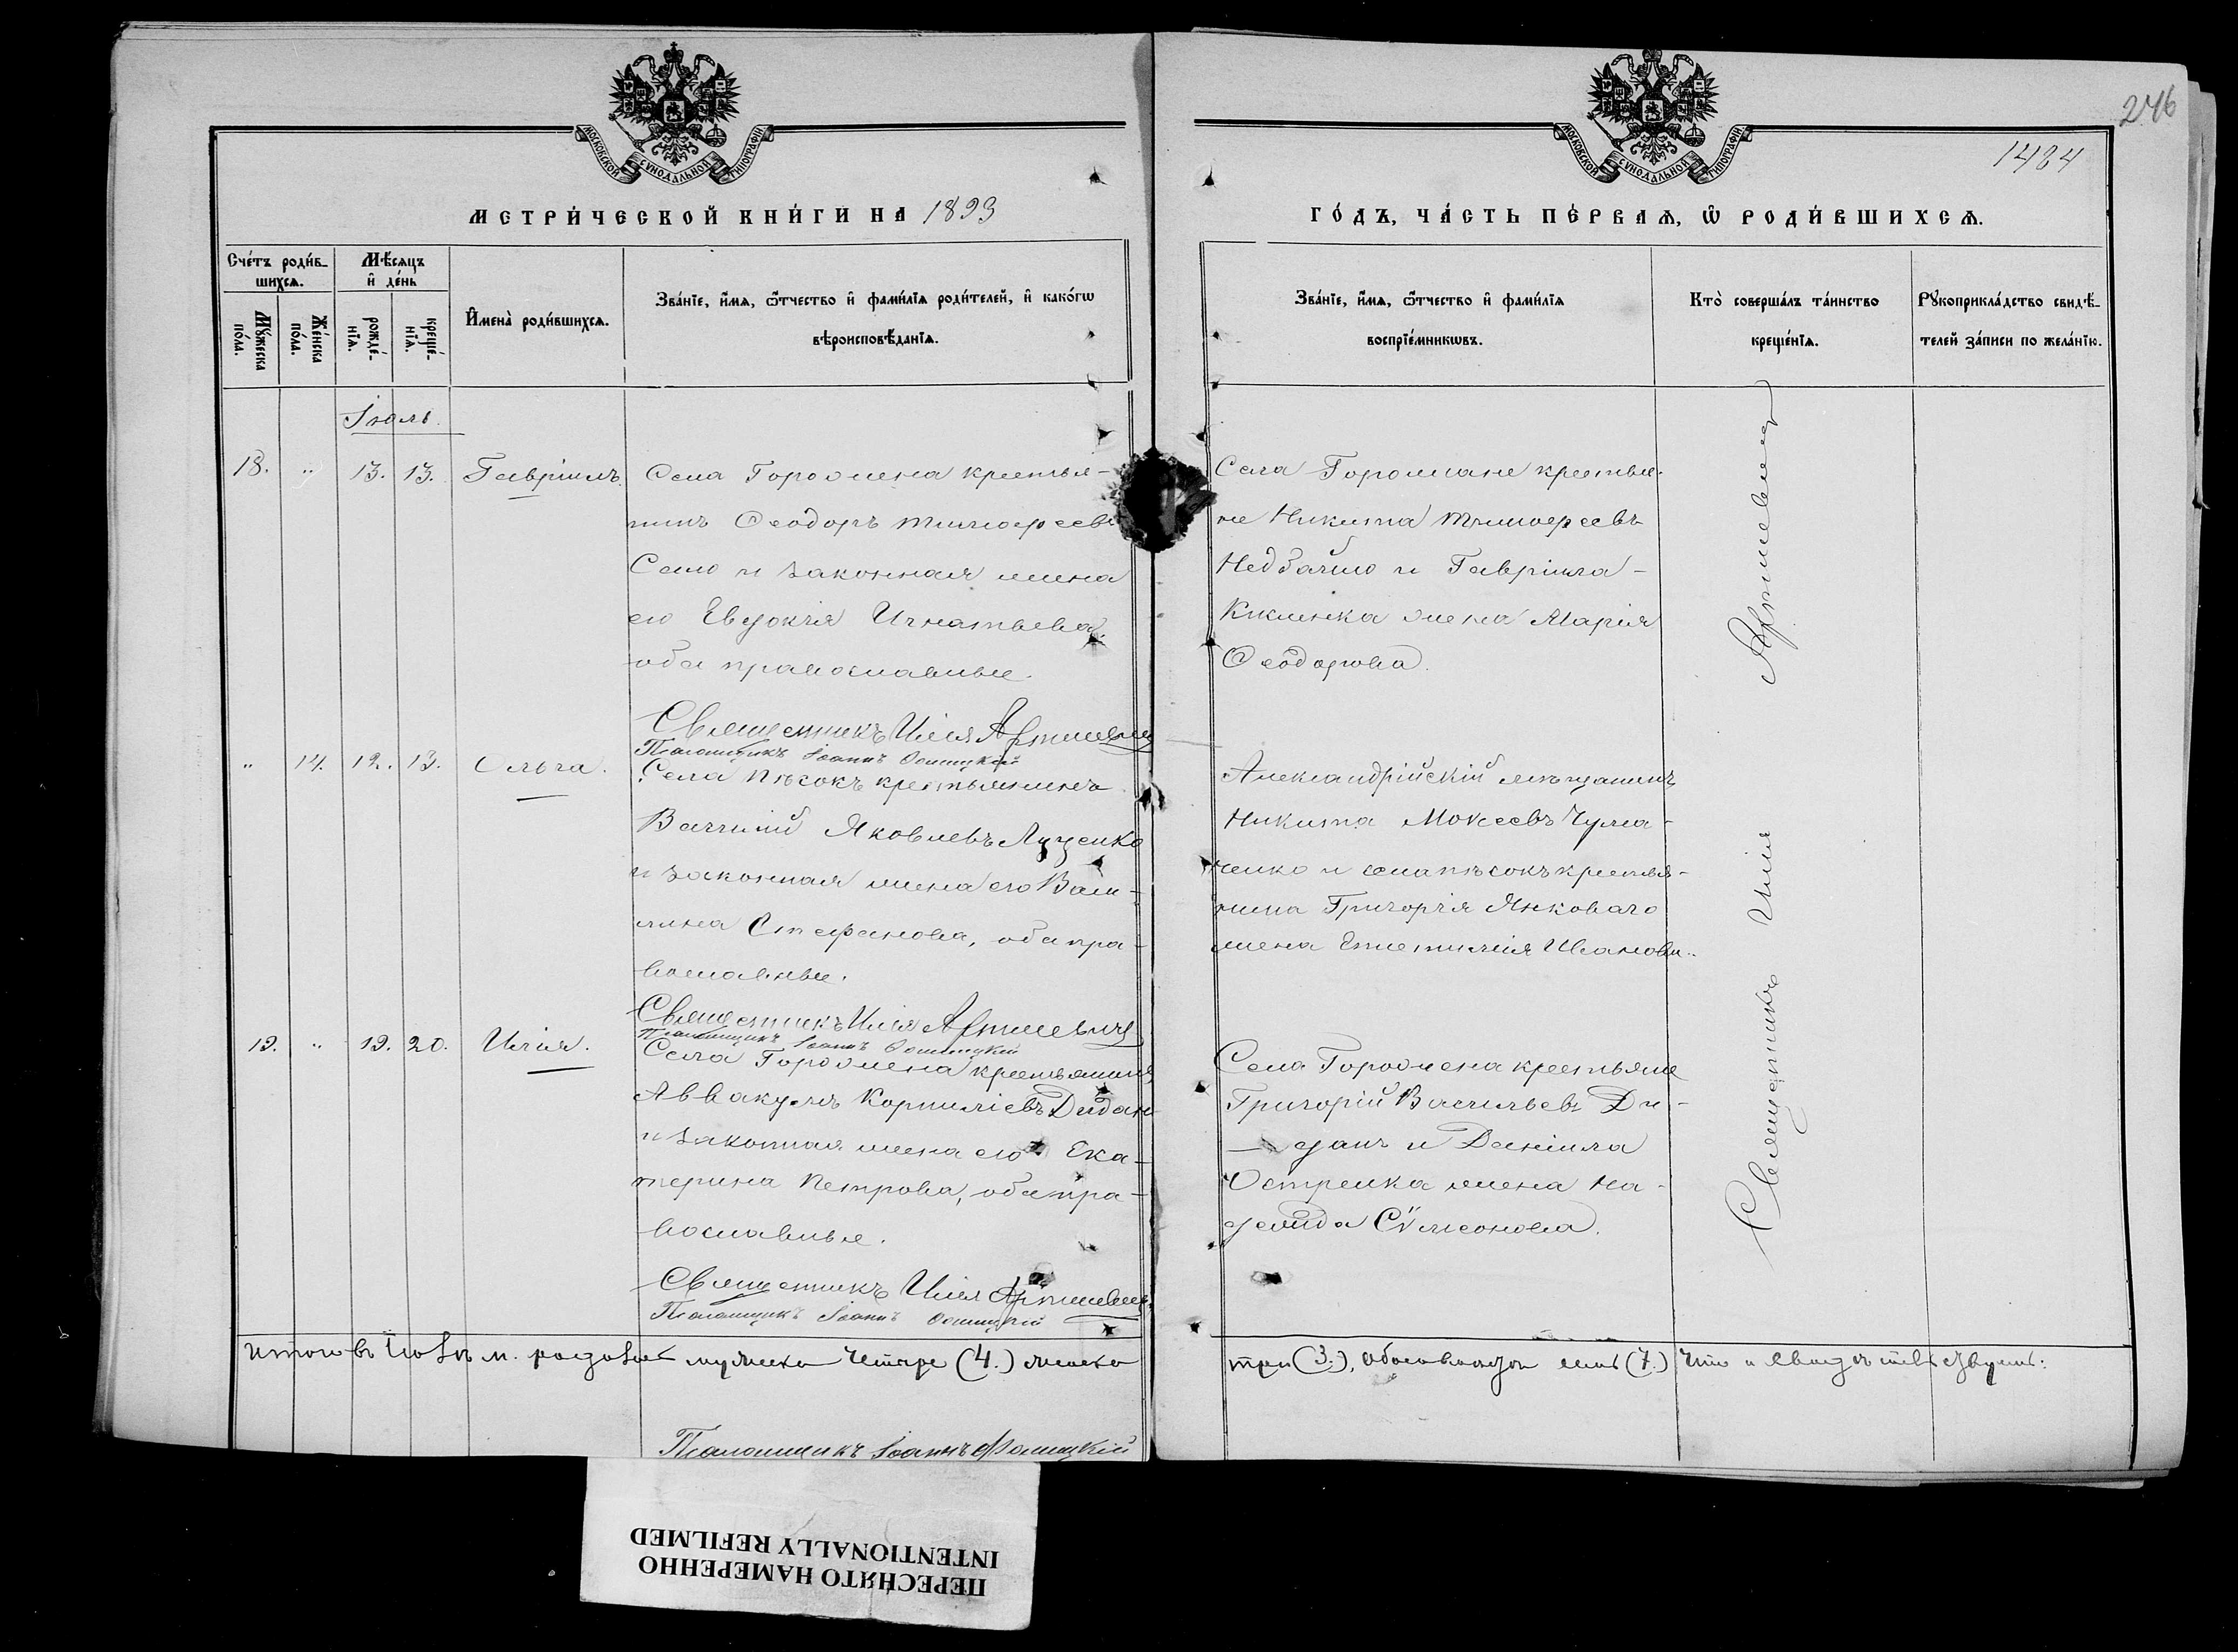 246
1484
МОСКОВСКОЙ СѴНОДАЛЬНОЙ ТИПОГРАФІИ
МОСКОВСКОЙ СѴНОДАЛЬНОЙ ТИПОГРАФІИ
МЕТРИ́ЧЕСКОЙ КНИ́ГИ НА 1893
ГО́ДЪ, ЧА́СТЬ ПЕ́РВАѦ, Ѿ РОДИ́ВШИХСѦ.
Сче́тъ роди́в-
шихсѧ.
Мѣ́сѧцъ
и҆ де́нь
Му́жеска
по́ла.
Же́нска
по́ла.
рожде́-
нїѧ.
креще́-
нїѧ.
И҆мена̀ роди́вшихсѧ.
Зва́нїе, и҆́мѧ, ѻ҆́тчество и҆ фами́лїѧ роди́телей, и҆ како́гѡ
вѣроисповѣ́данїѧ.
Зва́нїе, и҆́мѧ, ѻ҆́тчество и҆ фами́лїѧ
воспрїе́мникѡвъ.
Кто̀ соверша́лъ та́инство
креще́нїѧ.
Рꙋкоприкла́дство свидѣ́-
телей за́писи по жела́нїю.
Іюль.
18. " 13. 13. Гавріилъ
Села Городжена крестья-
нинъ Ѳеодоръ Тимоѳеевъ
Сало и законная жена
его Евдокія Игнатьева,
оба православные.
Священникъ Илія Артшевич
Псаломщикъ Іоаннъ
Села Городжене крестья-
не Никита Тимоѳеевъ
Недбайло и Гавріила
жена Марія
Ѳеодорова.
" 14. 12. 13. Ольга.
Села Пѣсокъ крестьянинъ
Василій Яковлевъ Луценко
и законная жена его Васи-
лина Стефанова, оба пра-
вославные.
Священникъ Илія Артшевичъ
Псаломщикъ Іоаннъ
Александрійскій мѣщанинъ
Никита Мокеевъ Чума-
ченко и села Пѣсокъ крестья-
нина Григорія Янковаго
жена Иванова.
19. " 19. 20. Илія.
Села Городжена крестьянинъ
Аввакумъ Корниліевъ Диданъ
и законная жена его Ека-
терина Петрова, оба пра-
вославные.
Священникъ Илія Артшевич
Псаломщикъ Іоаннъ
Села Городжена крестьяне
Григорій Васильевъ Ди-
данъ и Даніила
Остренка жена На-
дежда Сѵмеонова.
Священникъ Илія
Итого въ Іюлѣ м. родилось мужска четыре (4.) женска
три (3.), обоего пола семь (7.) Что и свидѣтельствуемъ:
Псаломщикъ Іоаннъ
ПЕРЕСНЯТО НАМЕРЕННО
INTENTIONALLY REFILMED